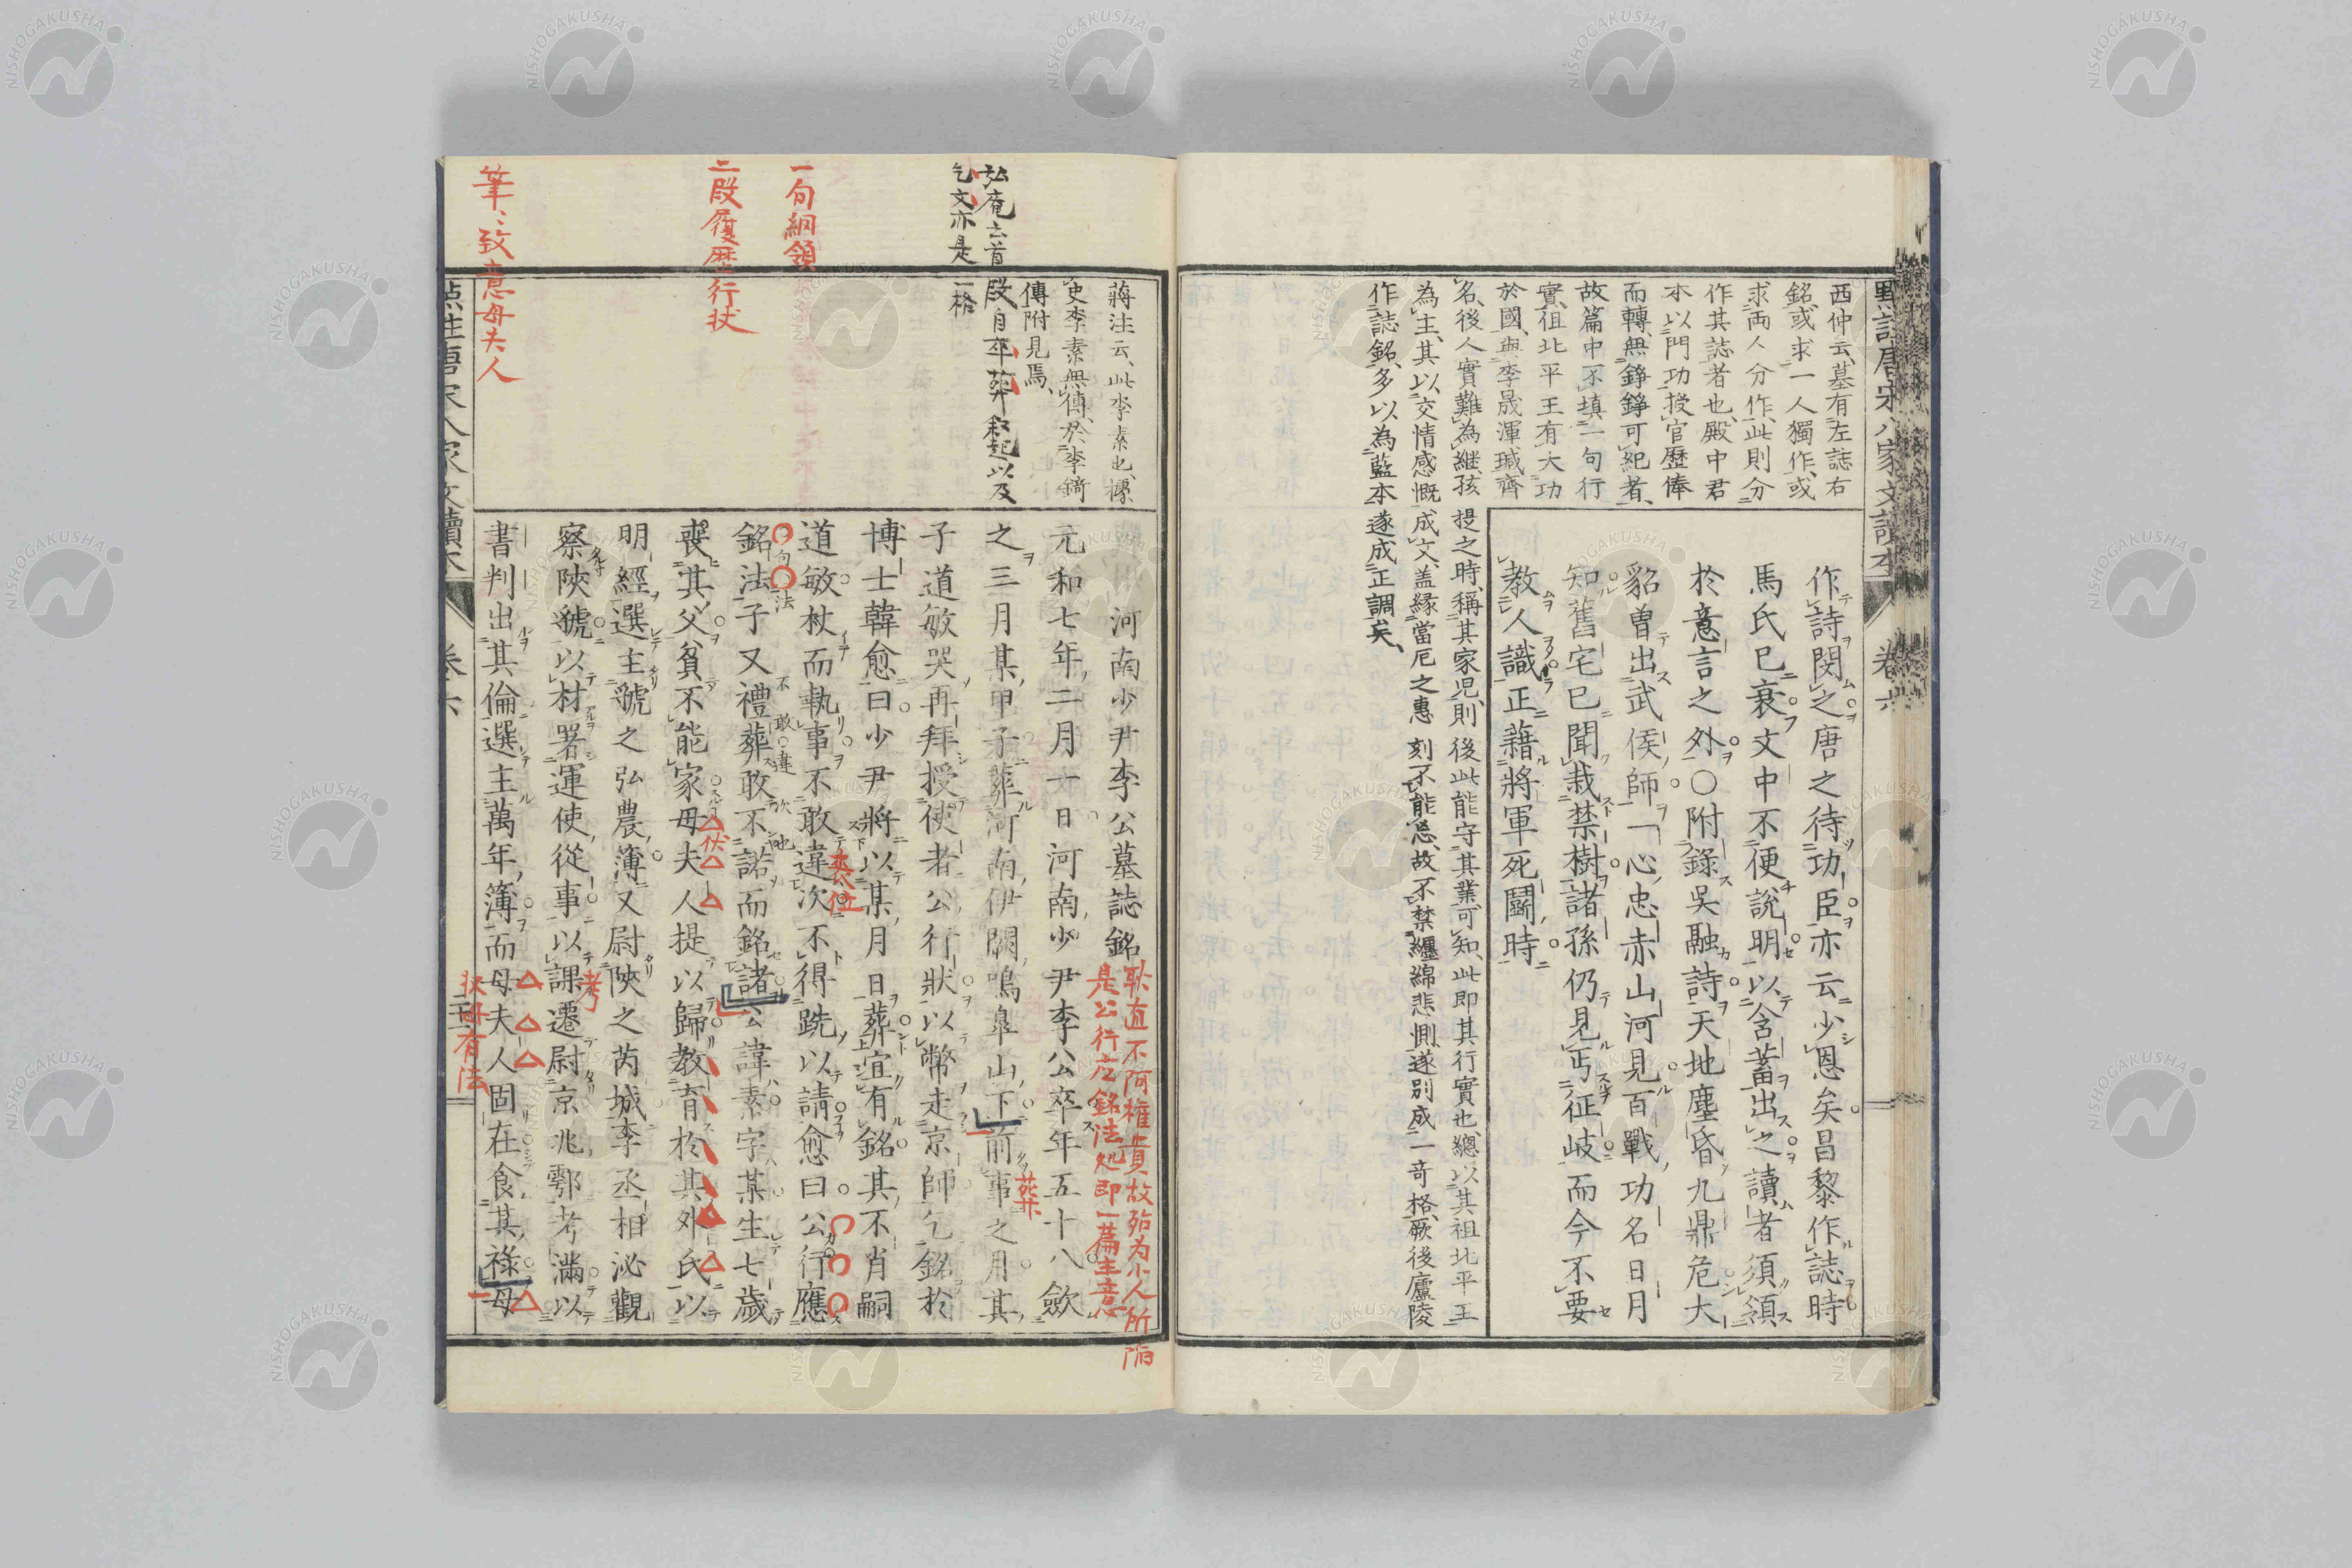 西仲云、墓有左誌右
銘、或求一人獨作、或
求両人分作、此則分
作其誌者也、殿中君
本以門功授官歴俸
而轉、無錚錚可紀者、
故篇中不填一句行
實、但北平王有大功
於國、與李晟渾瑊齊
名、後人實難為継、孩提之時稱其家児、則後此能守其業可知、此即其行實也、總以其祖北平王
為主、其以交情感慨成文、盖縁當厄之惠刻不能忘、故不禁纏綿悲惻、遂別成一奇格、厥後廬陵
作誌銘、多以為藍本、遂成正調矣、
作詩閔之唐之待功臣亦云少恩矣昌黎作誌時
馬氏已衰文中不便說明以含蓄出之讀者須領
於意言之外〇附錄吳融詩天地塵昏九鼎危大
貂曽出武侯師「心忠赤山河見百戰功名日月
知舊宅已聞栽禁樹諸孫仍見丐征岐而今不要
教人識正藉將軍死鬬時
卷六
蔣注云、此李素也、攄
史李素無傳、於李錡
傳附見焉、
弘庵云首段自卒葬叙起以及
乞文亦是一格
一句綱領
二段履歴行状
筆〻致意母夫人
河南少尹李公墓誌銘
耿直不阿権貴故殆为小人所陥
是公行应銘法処即一篇主意
元和七年二月一日河南少尹李公卒年五十八歛
之三月某甲子葬河南伊闕鳴皐山下前事之月其
葬
子道敏哭再拜授使者公行狀以幣走京師乞銘於
博士韓愈曰少尹將以某月日葬宜有銘其不肖嗣
道敏杖而執事不敢違次不得跣以請愈曰公行應
銘法子又禮葬敢不諾而銘諸公諱素字某生七歲
喪其父貧不能家母夫人提以歸教育於其外氏以
伏
明經選主虢之弘農簿又尉陝之芮城李丞相泌觀
察陝虢以材署運使從事以課遷尉京兆鄠考滿以
考
書判出其倫選主萬年簿而母夫人固在食其祿母
点註唐宋八家文讀本
卷六